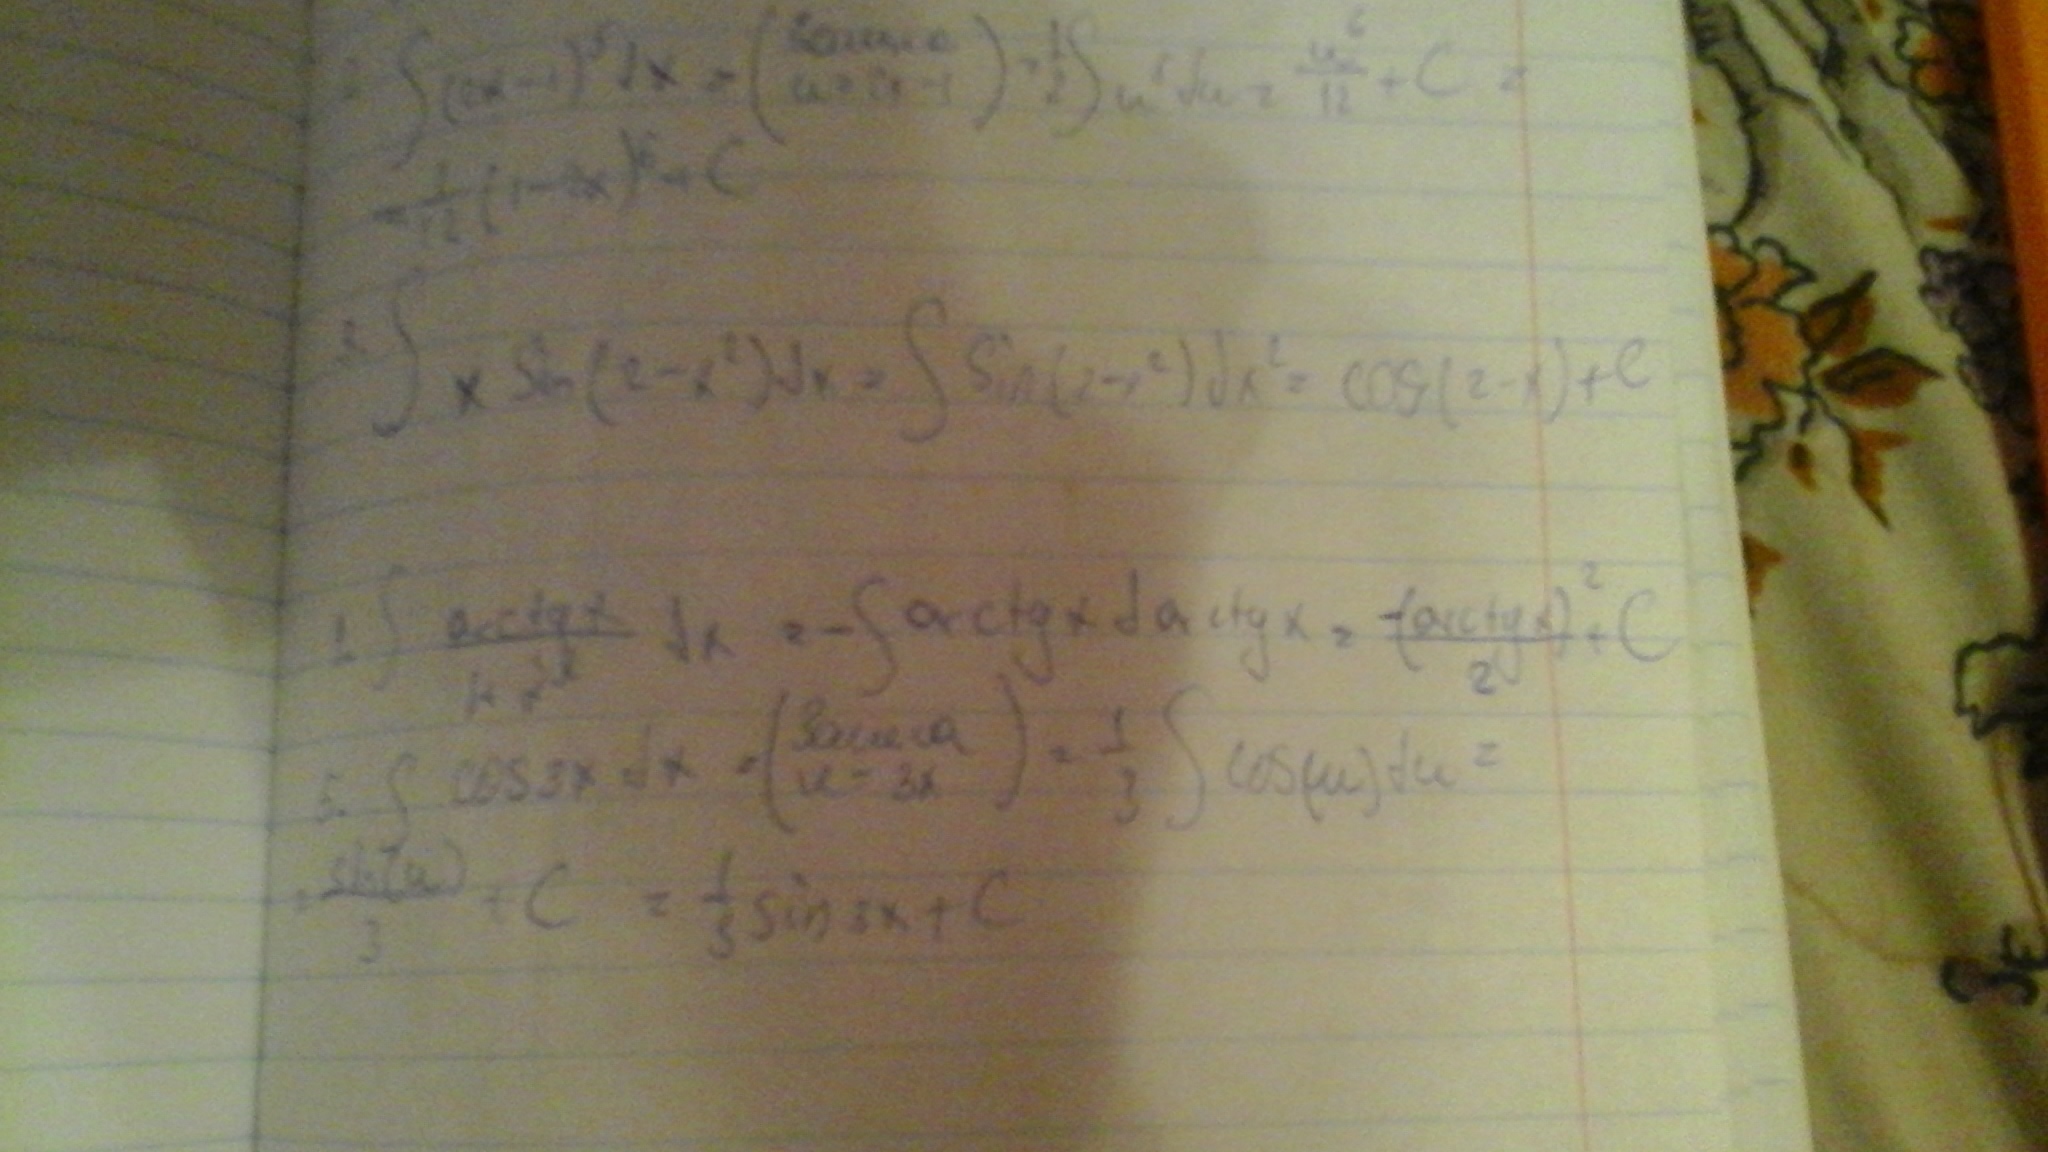 2. ∫(2x-1)⁵dx = (замена u=2x-1) = 1/2 ∫u⁵du = u⁶/12 + C =
= 1/12 (1-2x)⁶ + C
3. ∫ x sin(2-x²)dx = ∫ sin(2-x²)dx² = cos(2-x)+C
∫ arctgx/1+x² dx = -∫ arctgx d arctgx = -(arctgx)²/2 + C
5. ∫ cos3x dx = (замена u=3x) = 1/3 ∫ cos(u)du =
= sin(u)/3 + C = 1/3 sin3x + C